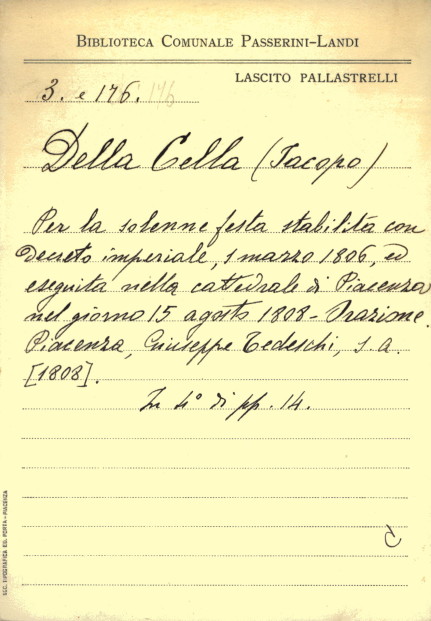 BIBLIOTECA COMUNALE PASSERINI-LANDI
LASCITO PALLASTRELLI
3. e 176. 176
Della Cella (Jacopo)
Per la solenne festa stabilita con
Decreto imperiale, 1 marzo 1806, ed
eseguita nella cattedrale di Piacenza
nel giorno 15 agosto 1808 - Orazione.
Piacenza, Giuseppe Tedeschi, s.a.
[1808].
In 4° di pp. 14.
C
SOC. TIPOGRAFICA ED. PORTA - PIACENZA